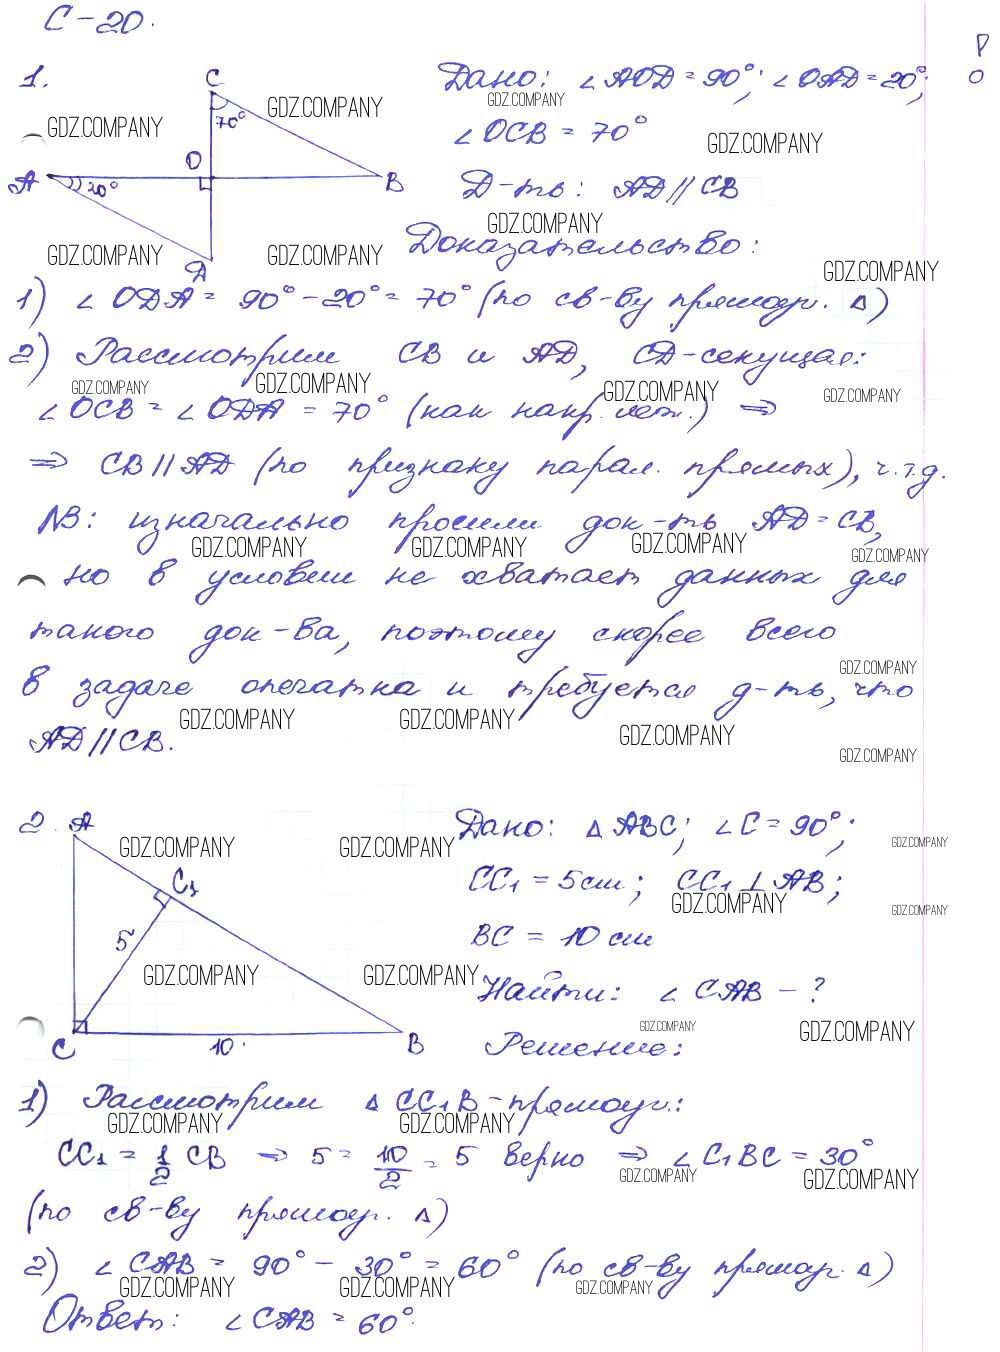 С-20.
1.
Дано: ∠AOD = 90°; ∠OAD = 20°;
∠OCB = 70°
Д-ть: AD // CB
C
70°
O
A
20°
B
D
Доказательство:
1) ∠ODA = 90° - 20° = 70° (по св-ву прямоуг. Δ)
2) Рассмотрим CB и AD, CD-секущая:
∠OCB = ∠ODA = 70° (как накр. леж.) ⇒
⇒ CB // AD (по признаку парал. прямых), ч.т.д.
NB: изначально просили док-ть AD = CB,
но в условии не хватает данных для
такого док-ва, поэтому скорее всего
в задаче опечатка и требуется д-ть, что
AD // CB.
2.
Дано: Δ ABC; ∠C = 90°;
CC₁ = 5 см; CC₁ ⊥ AB;
BC = 10 см
Найти: ∠CAB - ?
A
C₁
5
C
10
B
Решение:
1) Рассмотрим Δ CC₁B-прямоуг.:
CC₁ = 1/2 CB ⇒ 5 = 10/2 = 5 верно ⇒ ∠C₁BC = 30°
(по св-ву прямоуг. Δ)
2) ∠CAB = 90° - 30° = 60° (по св-ву прямоуг. Δ)
Ответ: ∠CAB = 60°.
GDZ.COMPANY